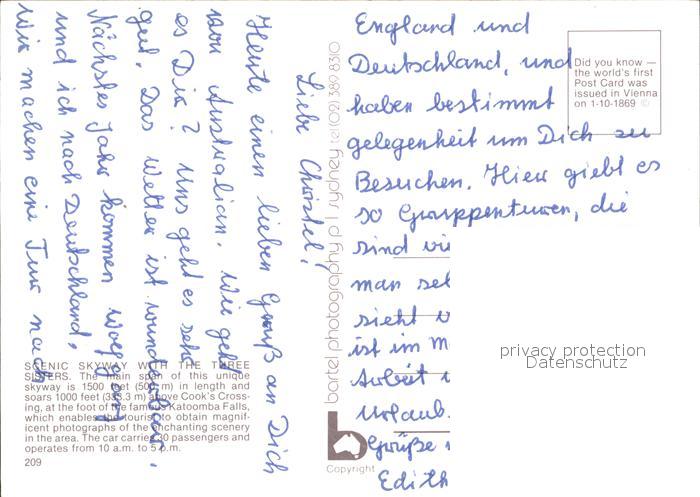 Liebe Christel!
Heute einen lieben Gruß an Dich
von Australian. Wie geht
es Dir? Uns geht es sehr
gut. Das Wetter ist wunderbar.
Nächstes Jahr kommen Wolfram
und ich nach Deutschland,
wir machen eine Tur nach
England und
Deutschland, und
haben bestimmt
gelegenheit um Dich zu
Besuchen. Hier giebt es
so Gruppenturen, die
sind
man
sieht
ist im
Arbeit
Urlaub.
Grüße
Edith
Did you know —
the world's first
Post Card was
issued in Vienna
on 1-10-1869 ©
SCENIC SKYWAY WITH THE THREE
SISTERS. The main span of this unique
skyway is 1500 feet in length and
soars 1000 feet above Cook's Cross-
ing, at the foot of the famous Katoomba Falls,
which enables the tourist to obtain magnif-
icent photographs of the enchanting scenery
in the area. The car carries 30 passengers and
operates from 10 a.m. to 5 p.m.
209
bartel photography p l sydney tel: (02) 389 830
b
Copyright
privacy protection
Datenschutz